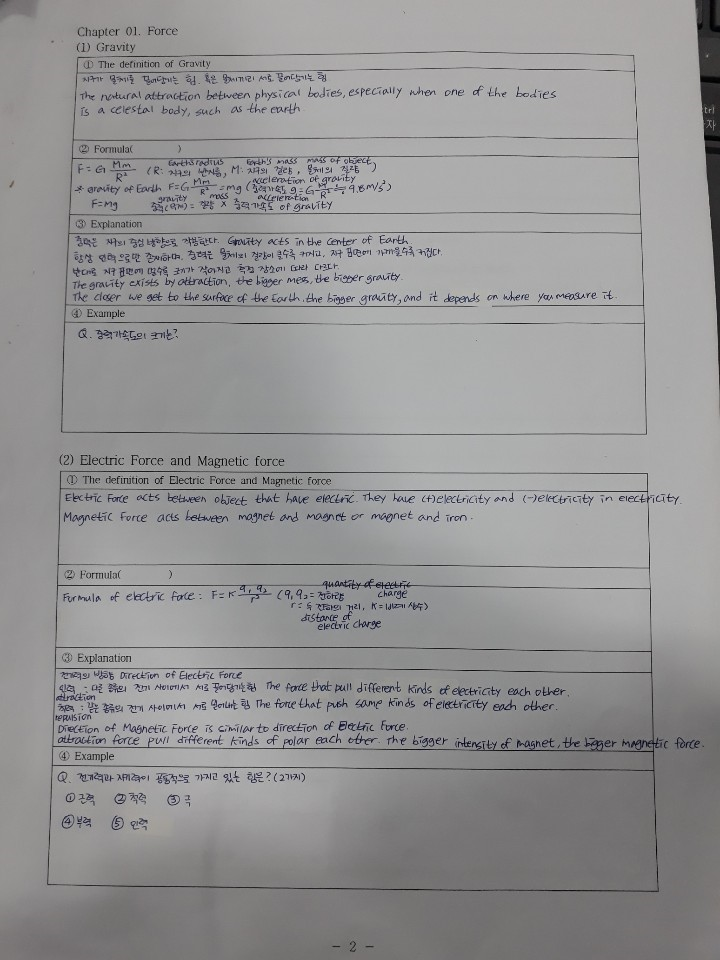 Chapter 01. Force
(1) Gravity
① The definition of Gravity
지구가 물체를 끌어당기는 힘. 혹은 물체끼리 서로 끌어당기는 힘
The natural attraction between physical bodies, especially when one of the bodies
is a celestal body, such as the earth
② Formula( )
F = G Mm/R² (R: 지구의 반지름, M: 지구의 질량, 물체의 질량)
Earth's radius Earth's mass mass of object
* gravity of Earth F=G Mm/R² = mg (중력가속도 g = G M/R² ≒ 9.8m/s²)
acceleration of gravity
F=mg 중력(무게) = 질량 × 중력가속도 of gravity
gravity mass acceleration
③ Explanation
중력은 지구의 중심 방향으로 작용한다. Gravity acts in the center of Earth.
항상 인력으로만 존재하며, 중력은 물체의 질량이 클수록 커지고, 지구 표면에 가까울수록 커진다.
반대로 지구 표면에 멀수록 크기가 작아지고 측정 장소에 따라 다르다.
The gravity exists by attraction, the bigger mess, the bigger gravity.
The closer we get to the surface of the Earth, the bigger gravity, and it depends on where you measure it.
④ Example
Q. 중력가속도의 크기는?
(2) Electric Force and Magnetic force
① The definition of Electric Force and Magnetic force
Electric Force acts between object that have electric. They have (+)electricity and (-)electricity in electricity.
Magnetic Force acts between magnet and magnet or magnet and iron.
② Formula( )
Formula of electric force : F = K q₁q₂/r² (q₁ q₂ = 전하량
quantity of electric charge
r = 두 전하의 거리, K = 비례상수)
distance of
electric charge
③ Explanation
전기력의 방향 Direction of Electric Force
인력 : 다른 종류의 전기 사이에서 서로 끌어당기는 힘 The force that pull different kinds of electricity each other.
attraction
척력 : 같은 종류의 전기 사이에서 서로 밀어내는 힘 The force that push same kinds of electricity each other.
repulsion
Direction of Magnetic Force is similar to direction of Electric Force.
attraction force pull different kinds of polar each other. The bigger intensity of magnet, the bigger magnetic force.
④ Example
Q. 전기력과 자기력이 공통적으로 가지고 있는 힘은? (2가지)
① 근력 ② 척력 ③ 극
④ 부력 ⑤ 인력
- 2 -